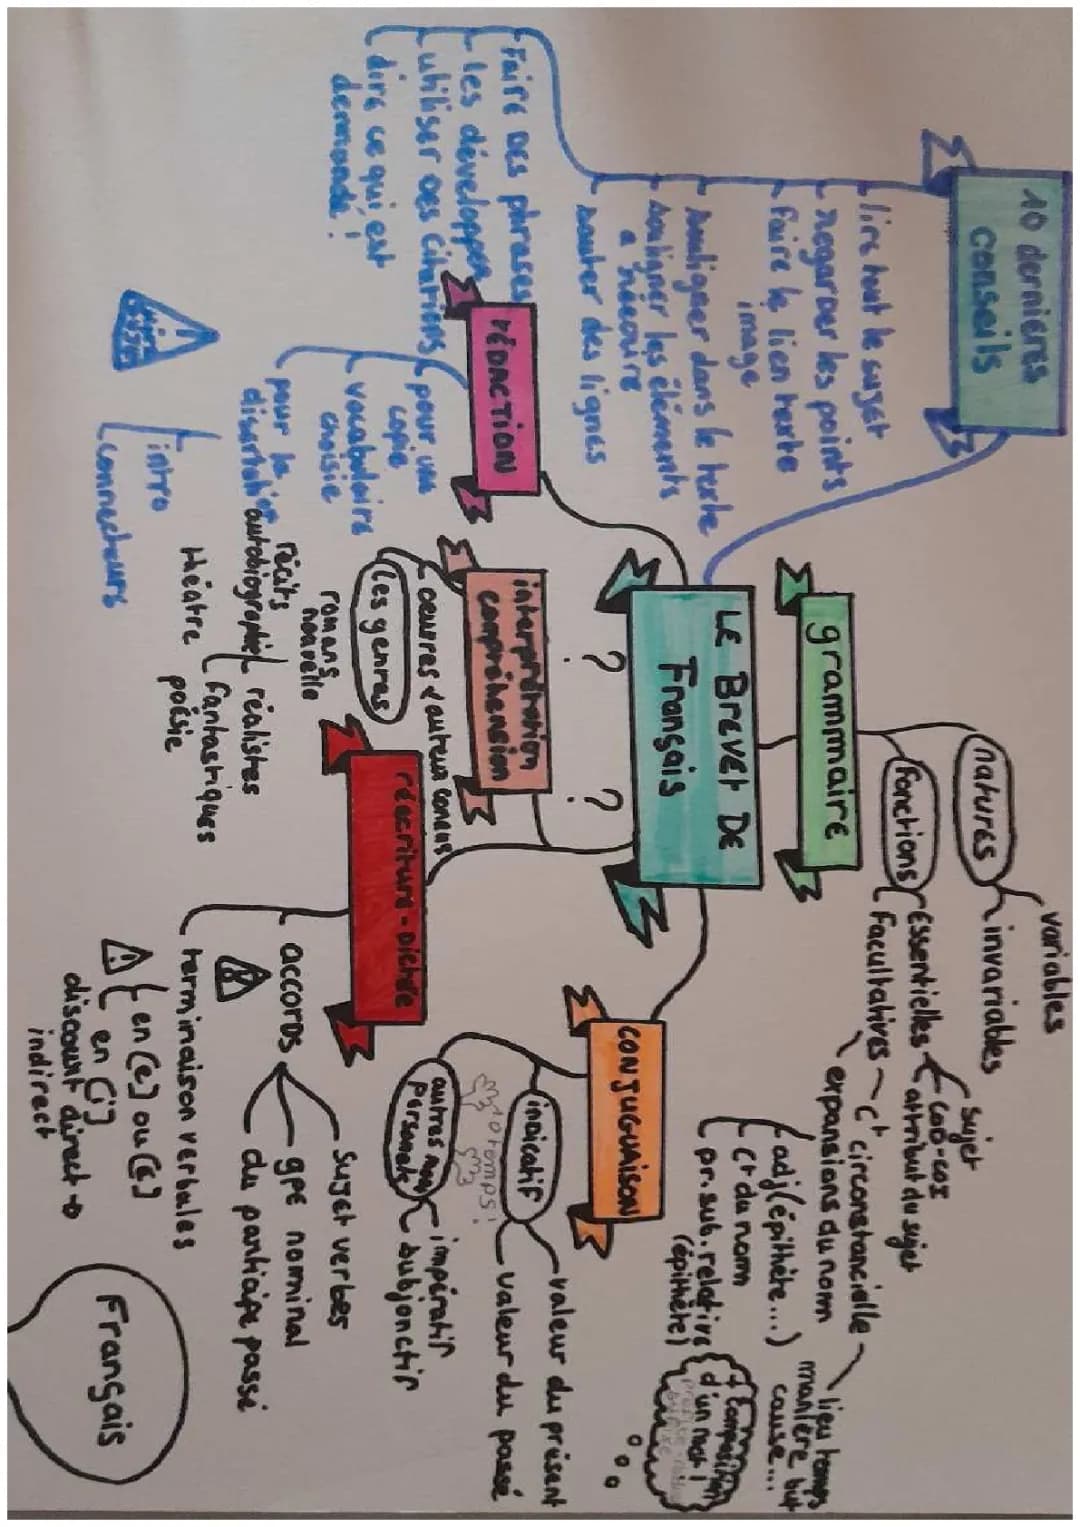 LE BREVET DE
Français
?
?
10 dernières
conseils
lire tout le sujet
regarder les points
faire le lien texte
image
souligner dans le texte
souligner les éléments
a réécrire
sauter des lignes
Faire des phrases
les développer
utiliser des citations
dire ce qui est
demandé !
rédaction
pour une
copie
vocabulaire
choisie
pour la
intro
connecteurs
grammaire
natures
variables
invariables
fonctions
éssentielles
sujet
COD-COI
attribut du sujet
Facultatives
ct circonstancielle
lieu temps
manière but
cause...
expansions du nom
adj (épithète...)
ct du nom
pr. sub. relative
(épithète)
+ composition
d'un mot !
interprétation
compréhension
oeuvres & auteurs connus
les genres
romans
nouvelle
récits
autobiographie
réalistes
fantastiques
théatre
poésie
conjuguaison
indicatif
valeur du présent
valeur du passé
temps !
autres
impératif
subjonctif
réécriture - dictée
accords
sujet verbes
gpe nominal
du participe passé
terminaison verbales
en (e) ou (é)
en (i)
discourt direct →
indirect
Français